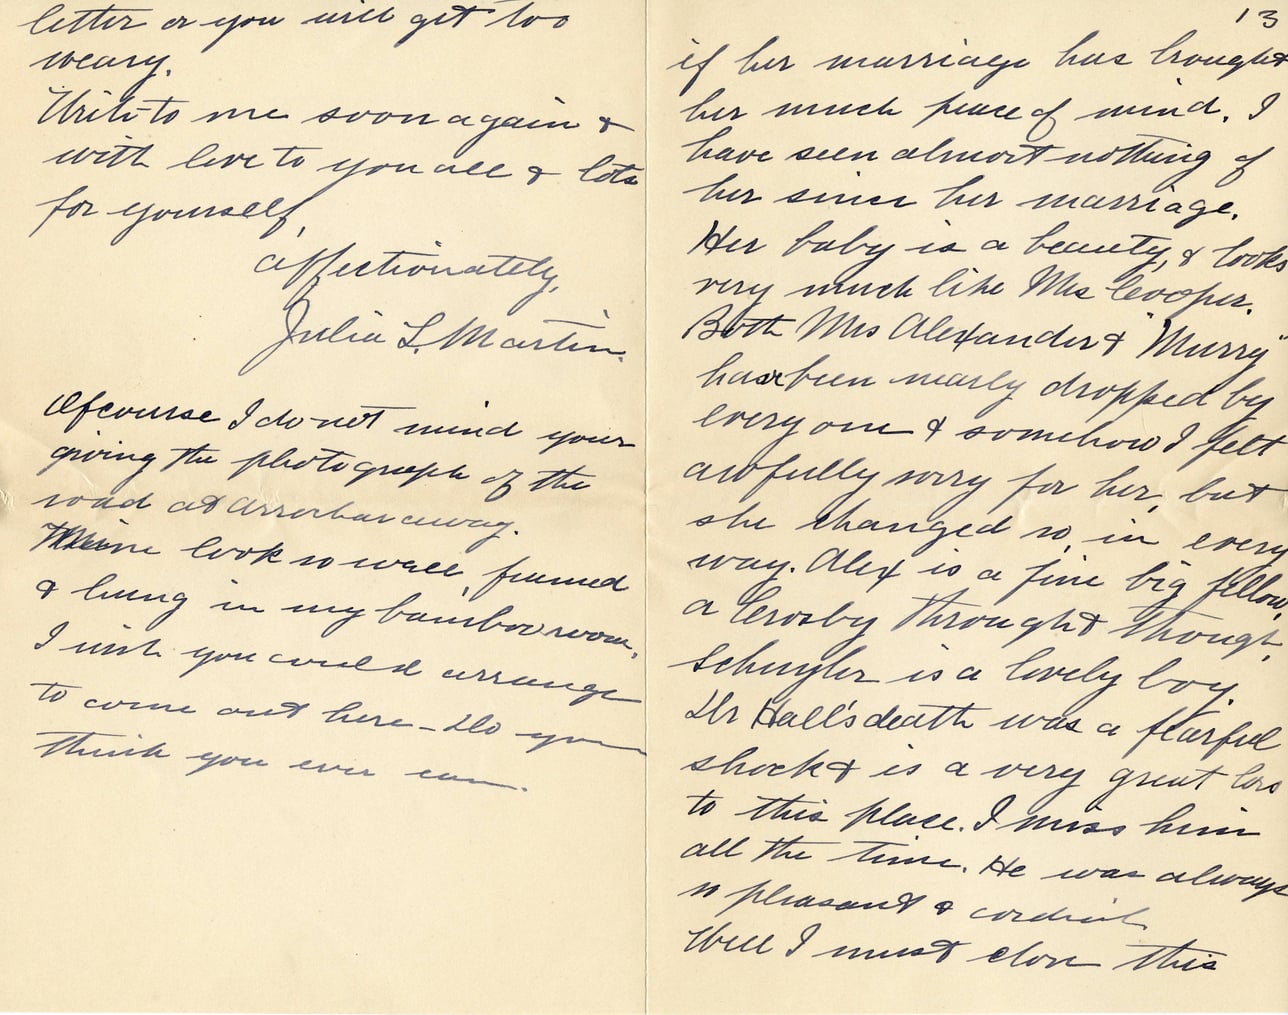 13
if her marriage has brought
her much peace of mind. I
have seen almost nothing of
her since her marriage.
Her baby is a beauty, & looks
very much like Mrs Cooper.
Both Mrs Alexander & "Murry"
have been nearly dropped by
every one & somehow I felt
awfully sorry for her, but
she changed so, in every
way. Alex is a fine big fellow,
a Crosby through & though.
Schuyler is a lovely boy.
Dr Hall's death was a fearful
shock & is a very great loss
to this place. I miss him
all the time. He was always
so pleasant & cordial
Well I must close this
letter or you will get too
weary.
Write to me soon again &
with love to you all & lots
for yourself,
affectionately,
Julia L. Martin.
Of course I do not mind your
giving the photograph of the
road at Arrochar away.
Mine look so well, framed
& hung in my bamboo room,
I wish you could arrange
to come out here - Do you
think you ever can.